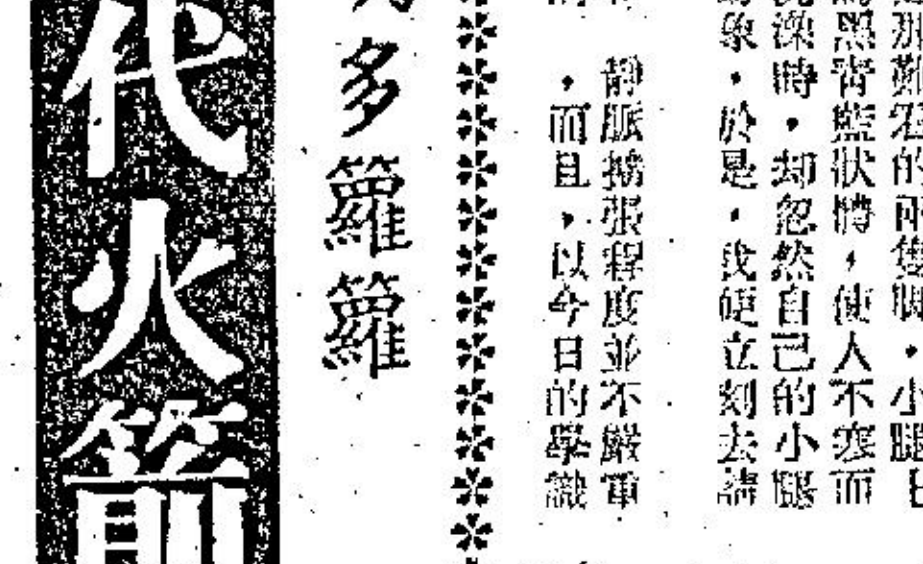 那難看的兩隻脚，小腿上
黑青藍狀時，使人不寒而
洗澡時，却忽然自己的小腿
象，於是，我便立刻去請
靜脈擴張程度並不嚴重
，而且，以今日的學識
多籮籮
代火箭